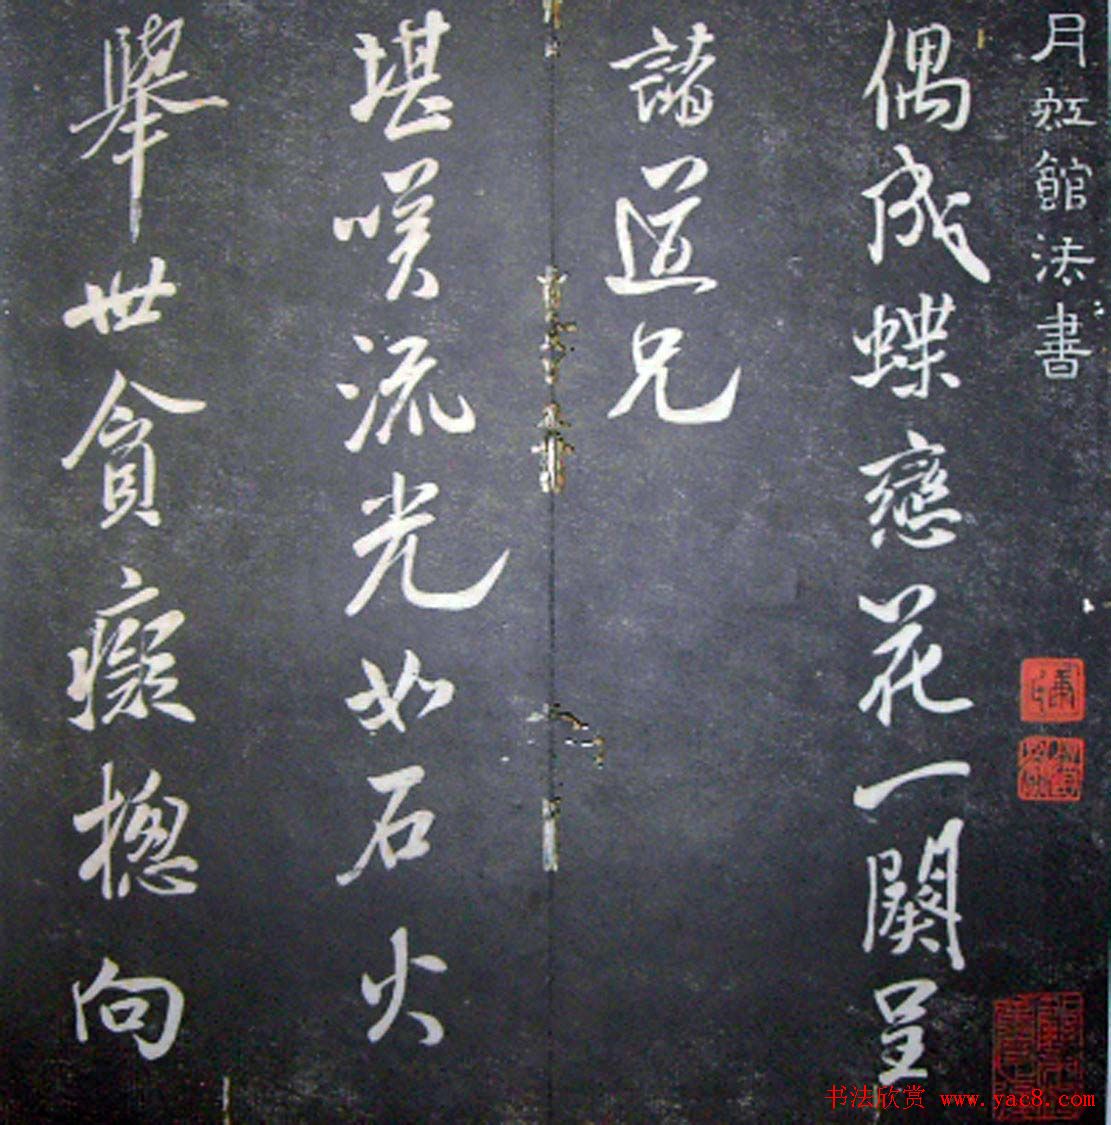 月虹館法書
偶成蝶戀花一闋呈
諸道兄
堪嘆流光如石火
舉世貪癡摠向
书法欣赏 www.yac8.com